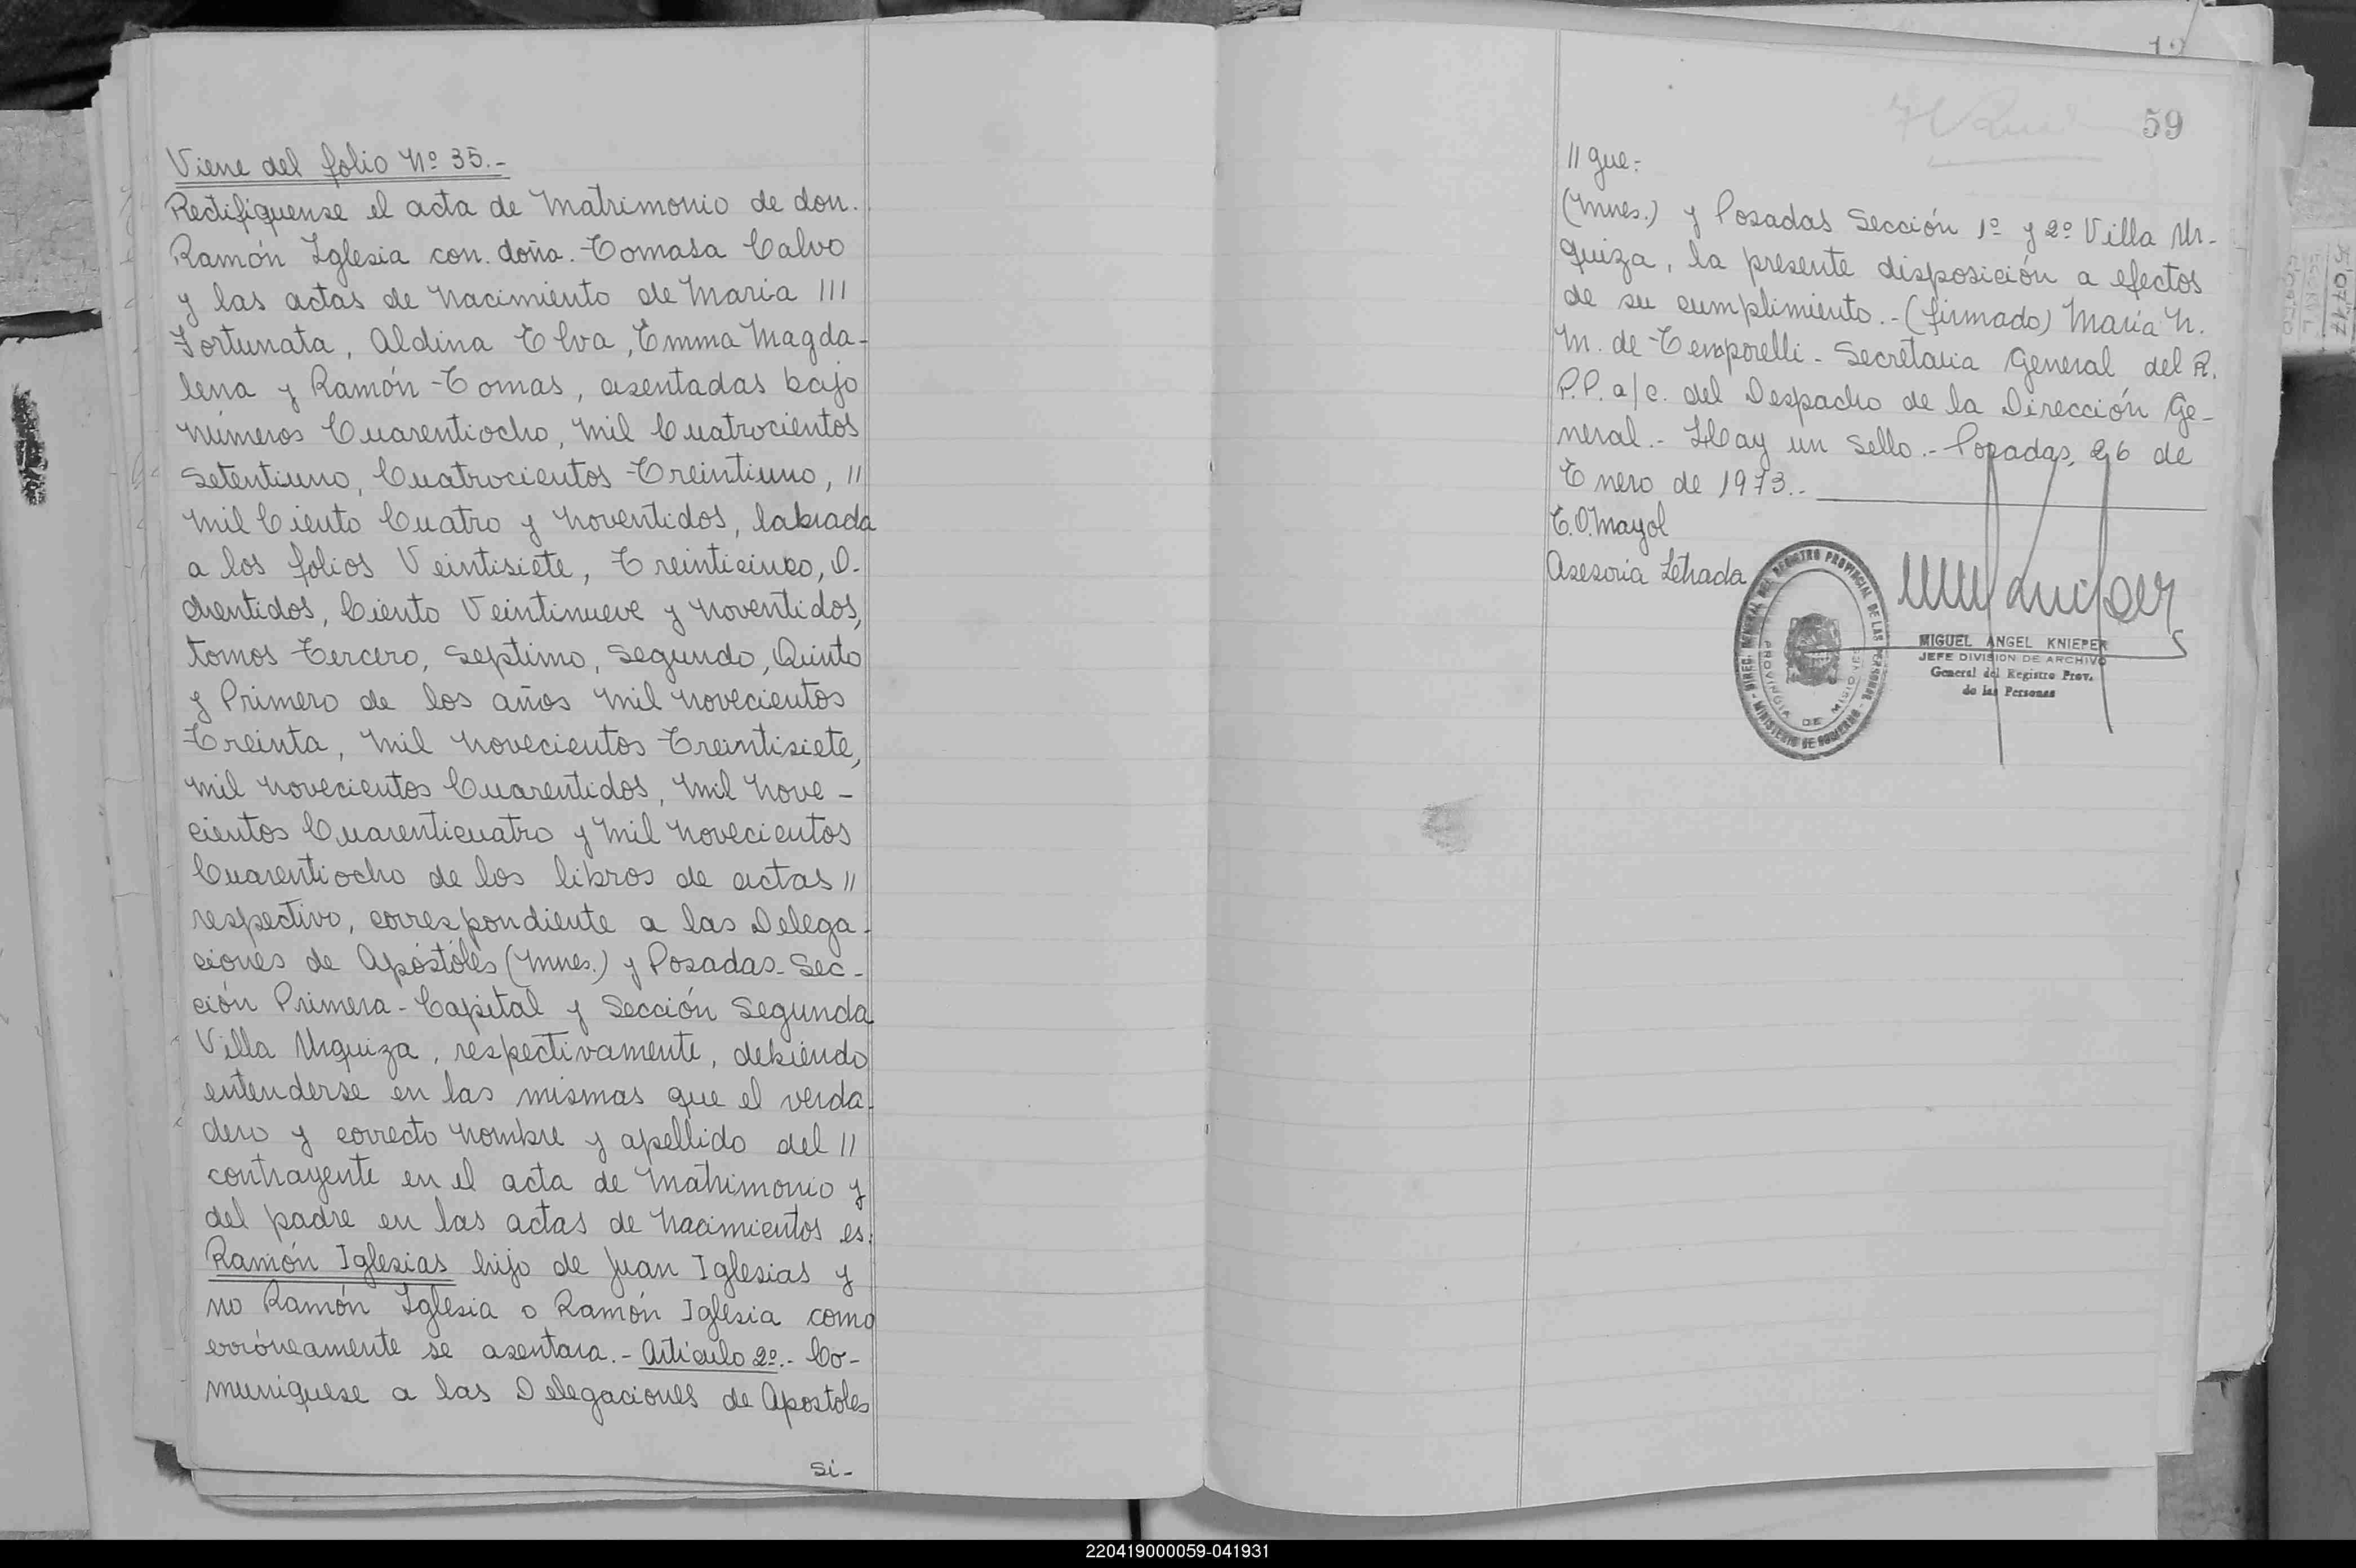 Viene del folio Nº 35.-
Rectifiquense el acta de Matrimonio de don.
Ramón Iglesia con. doña. Tomasa Calvo
y las actas de Nacimiento de Maria ///
Fortunata, Aldina Elva, Emma Magda-
lena y Ramón Tomas, asentadas bajo
números Cuarentiocho, Mil Cuatrocientos
Setentiuno, Cuatrocientos Treintiuno, //
Mil Ciento Cuatro y Noventidos, labrada
a los folios Veintisiete, Treinticinco, O-
chentidos, Ciento Veintinueve y Noventidos,
tomos Tercero, Septimo, Segundo, Quinto
y Primero de los años Mil Novecientos
Treinta, Mil Novecientos Treintisiete,
Mil Novecientos Cuarentidos, Mil Nove-
cientos Cuarenticuatro y Mil Novecientos
Cuarentiocho de los libros de actas //
respectivo, correspondiente a las Delega-
ciones de Apóstóles (Mnes.) y Posadas- Sec-
ción Primera- Capital y Sección Segunda
Villa Urquiza, respectivamente, debiendo
entenderse en las mismas que el verda-
dero y correcto nombre y apellido del //
contrayente en el acta de Matrimonio y
del padre en las actas de Nacimientos es:
Ramón Iglesias hijo de Juan Iglesias y
no Ramón Iglesia o Ramón Iglesia como
erróneamente se asentara.- Artículo 2º.- Co-
muniquese a las Delegaciones de Apostoles
si-
59
// gue:
(Mnes.) y Posadas Sección 1º y 2º Villa Ur-
quiza, la presente disposición a efectos
de su cumplimiento.- (firmado) Maria N.
M. de Temporelli- Secretaria General del R.
P.P. a/c. del Despacho de la Dirección Ge-
neral.- Hay un Sello.- Posadas, 26 de
Enero de 1973.-
E.O. Mayol
Asesoria Letrada
DIREC. GENERAL DEL REGISTRO PROVINCIAL DE LAS PERSONAS
MINISTERIO DE GOBIERNO
PROVINCIA DE MISIONES
MIGUEL ANGEL KNIEPER
JEFE DIVISION DE ARCHIVO
General del Registro Prov.
de las Personas
220419000059-041931